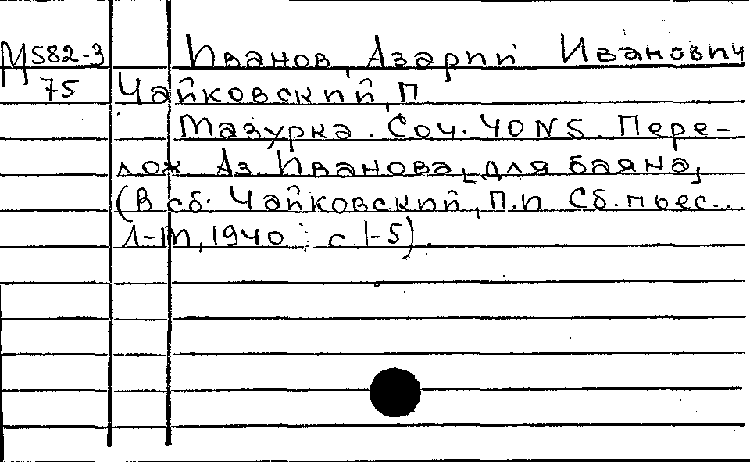 М582-3 Иванов, Азарий Иванович
75 Чайковский, П
Мазурка. Соч. 40 N5. Пере-
лож Аз. Иванова [для баяна]
(В сб. Чайковский, П.И Сб. пьес...
Л-М, 1940, с 1-5).